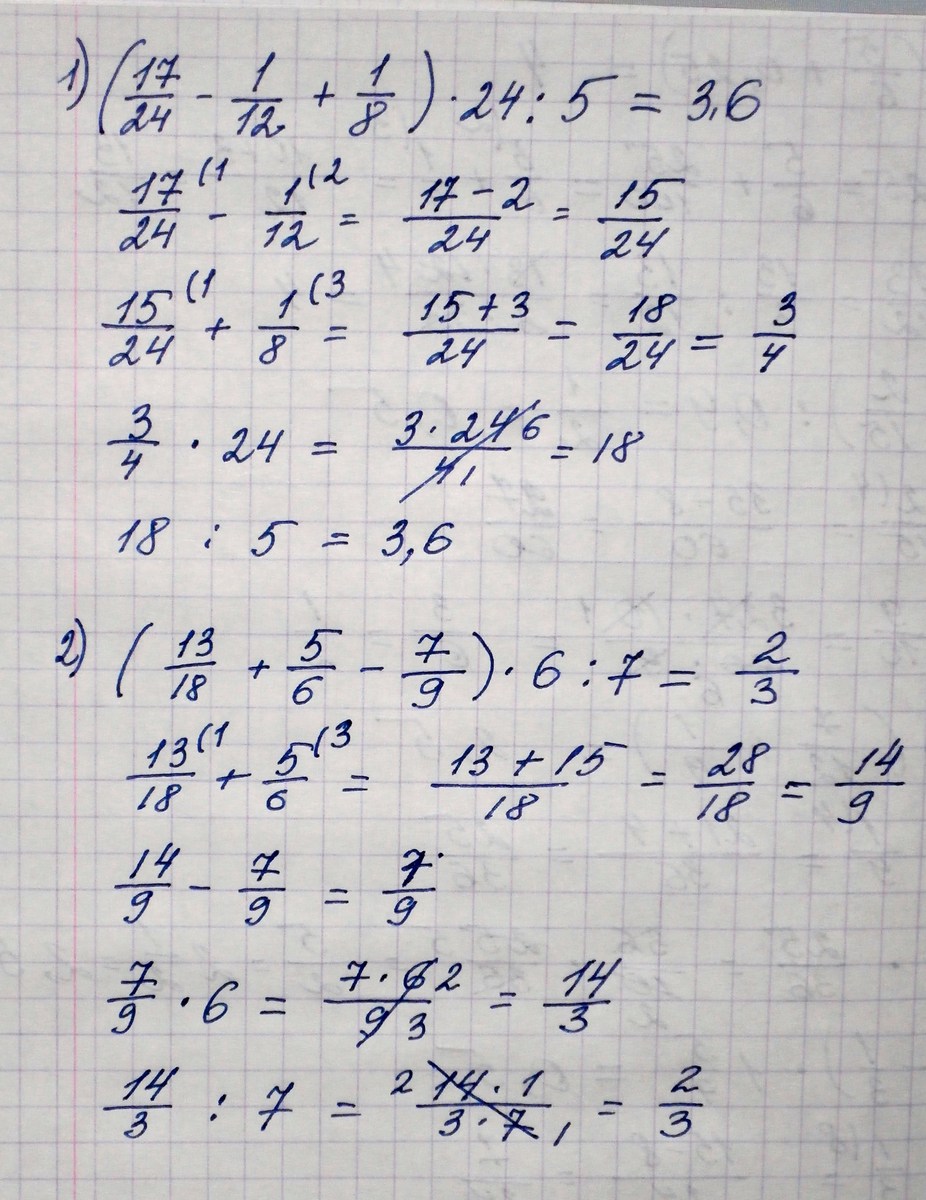 1) (17/24 - 1/12 + 1/8) · 24 : 5 = 3,6
17/24 (1 - 1/12 (2 = (17 - 2)/24 = 15/24
15/24 (1 + 1/8 (3 = (15 + 3)/24 = 18/24 = 3/4
3/4 · 24 = (3 · 24 6)/(4 1) = 18
18 : 5 = 3,6
2) (13/18 + 5/6 - 7/9) · 6 : 7 = 2/3
13/18 (1 + 5/6 (3 = (13 + 15)/18 = 28/18 = 14/9
14/9 - 7/9 = 7/9
7/9 · 6 = (7 · 6 2)/(9 3) = 14/3
14/3 : 7 = (2 14 · 1)/(3 · 7 1) = 2/3